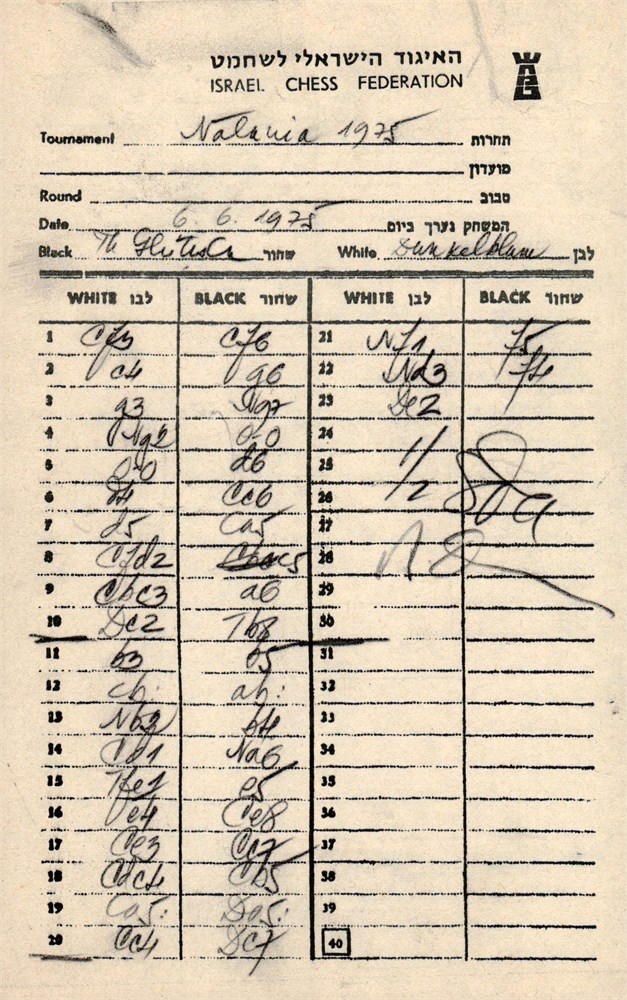 האיגוד הישראלי לשחמט
ISRAEL CHESS FEDERATION
Tournament Natania 1975 תחרות
מועדון
Round סבוב
Date 6. 6. 1975 המשחק נערך ביום
Black Th שחור White Dunkelblum לבן
WHITE לבן BLACK שחור WHITE לבן BLACK שחור
1 Cf3 Cf6 21 Nf1 f5
2 c4 g6 22 Nd3 f4
3 g3 Ng7 23 De2
4 Ng2 0-0 24
5 0-0 d6 25 1/2
6 d4 Cc6 26
7 d5 Ca5 27
8 Cfd2 c5 28
9 Cbc3 a6 29
10 Dc2 Tb8 30
11 b3 b5 31
12 cb: ab: 32
13 Nb2 b4 33
14 Cd1 Na6 34
15 Tfe1 e5 35
16 e4 Ce8 36
17 Ce3 Cc7 37
18 Cdc4 Cb5 38
19 Ca5: Da5: 39
20 Cc4 Dc7 40